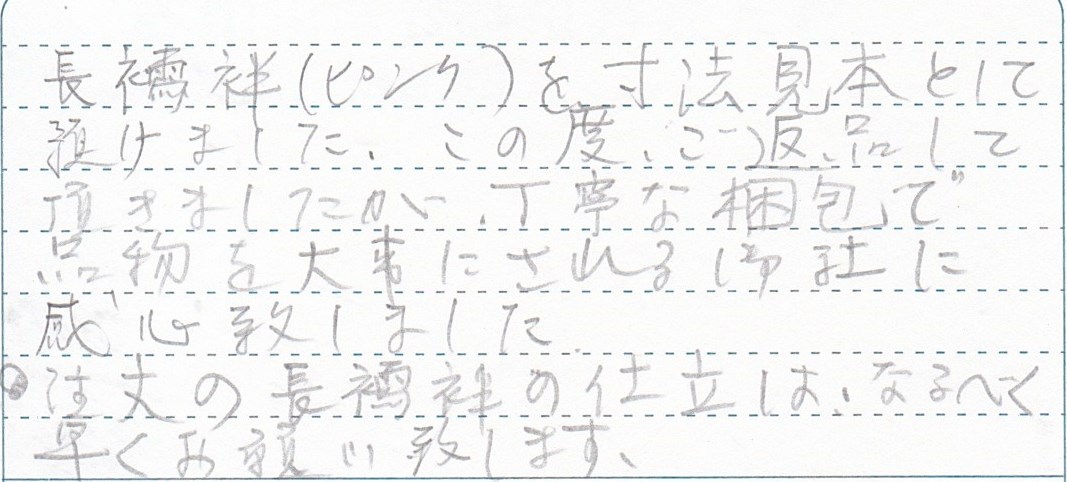 長襦袢(ピンク)を寸法見本として
預けました、この度、ご返品して
頂きましたが、丁寧な梱包で
品物を大事にされる御社に
感心致しました
●注文の長襦袢の仕立は、なるべく
早くお願い致します、